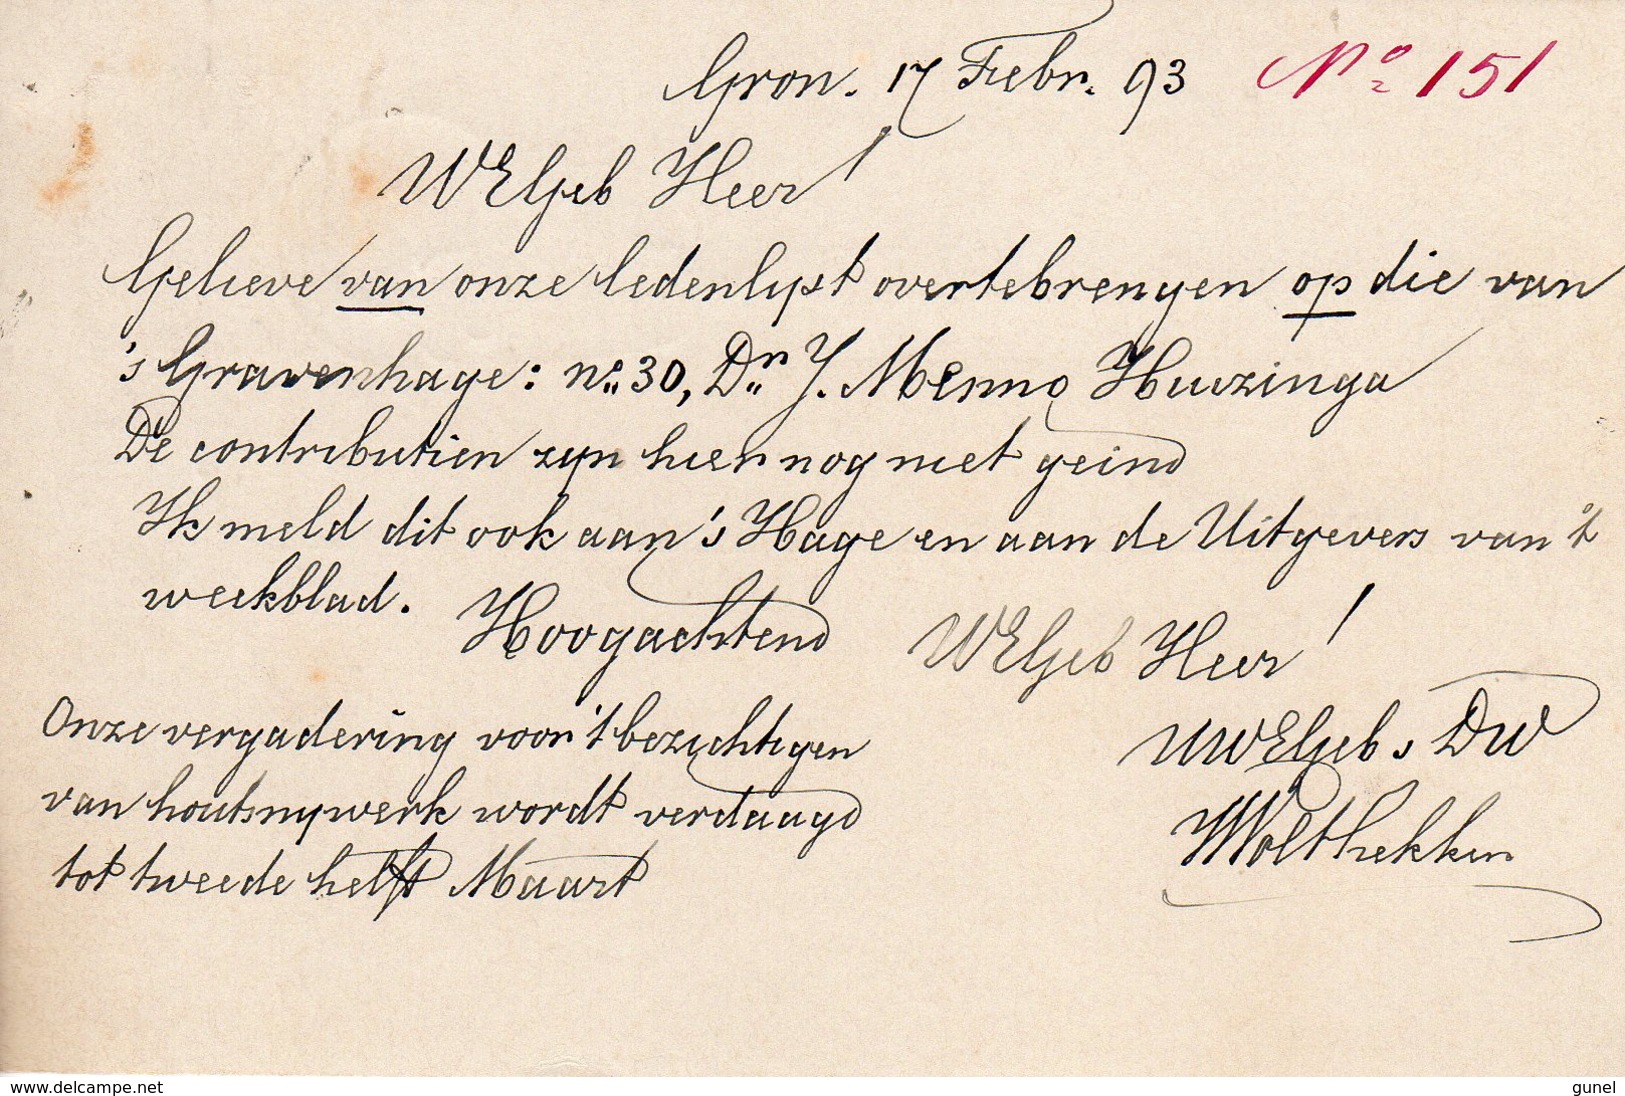 Gron. 17 Febr. 93 No 151
WElGeb Heer!
Gelieve van onze ledenlijst overtebrengen op die van
's Gravenhage: no. 30, Dr. J. Menno Huizinga
De contributien zijn hier nog niet geind
Ik meld dit ook aan 's Hage en aan de Uitgevers van 't
weekblad.
Hoogachtend WElGeb Heer!
UWElGeb s DW
Wolthekker
Onze vergadering voor 't bezichtigen
van houtsnijwerk wordt verdaagd
tot tweede helft Maart
www.delcampe.net
gunel